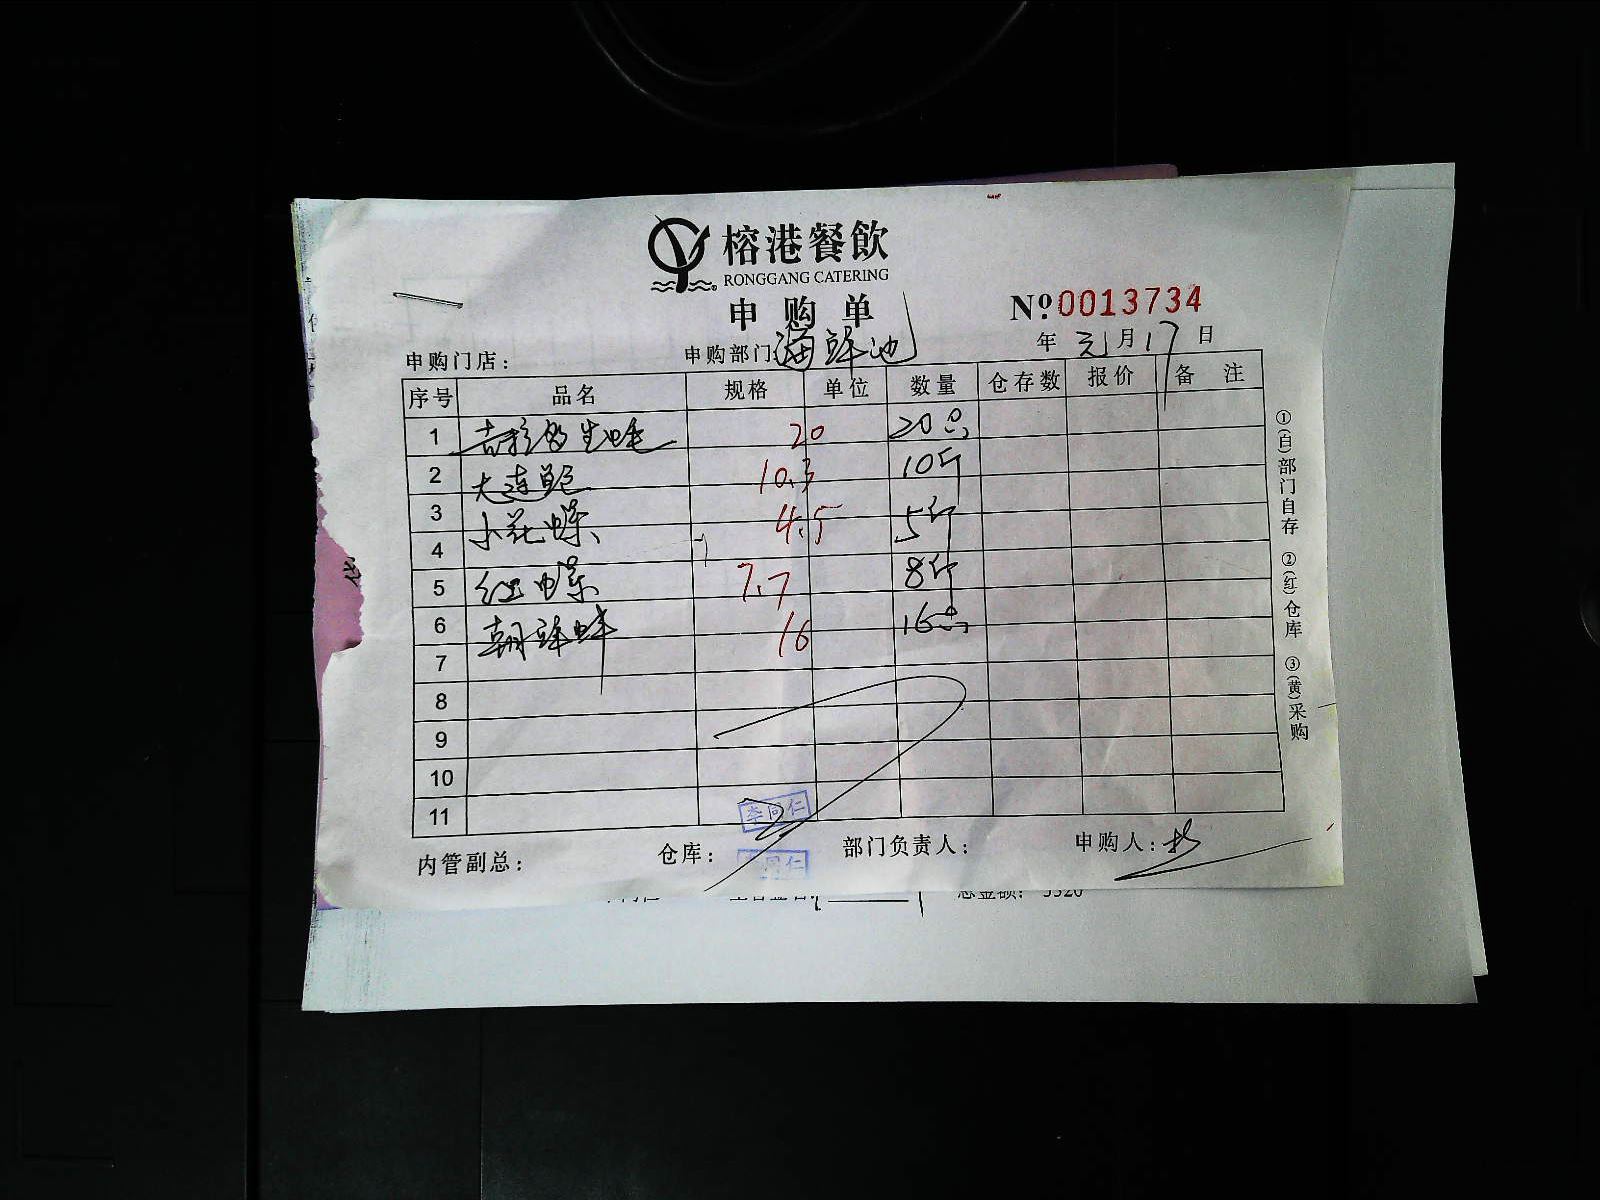 榕港餐飲
RONGGANG CATERING
申购单
Nº 0013734
年 元 月 17 日
申购门店： 申购部门：海鲜池
序号 品名 规格 单位 数量 仓存数 报价 备 注
1 吉拉多生蚝 20 20只
2 大连鲍 10.3 10斤
3 小花螺 4.5 5斤
4
5 红螺 7.7 8斤
6 朝鲜蚌 16 16只
7
8
9
10
11
李同仁
内管副总： 仓库： 部门负责人： 申购人：
①(白)部门自存 ②(红)仓库 ③(黄)采购
总金额： 5520